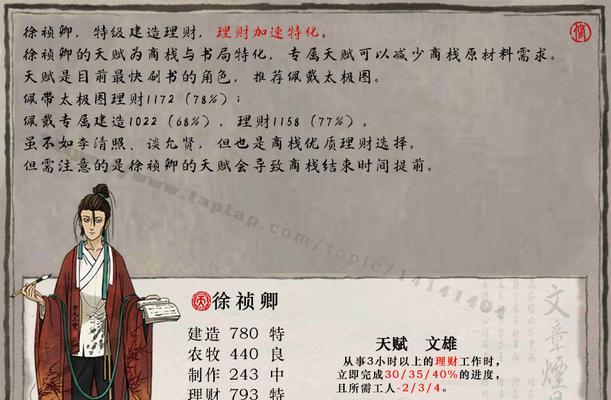 徐祯卿，特级建造理财，理财加速特化。
徐祯卿的天赋为商栈与书局特化，专属天赋可以减少商栈原材料需求。
天赋是目前最快刷书的角色，推荐佩戴太极图。
佩带太极图理财1172（78%）；
佩戴专属建造1022（68%），理财1158（77%）。
虽不如李清照、谈允贤，但也是商栈优质理财选择。
但需注意的是徐祯卿的天赋会导致商栈结束时间提前。
www.taptap.com/topic/14141404
徐祯卿
建造 780 特
农牧 440 良
制作 243 中
理财 793 特
天赋 文雄
从事3小时以上的理财工作时，
立即完成30/35/40%的进度，
且所需工人-2/3/4。
文章烟